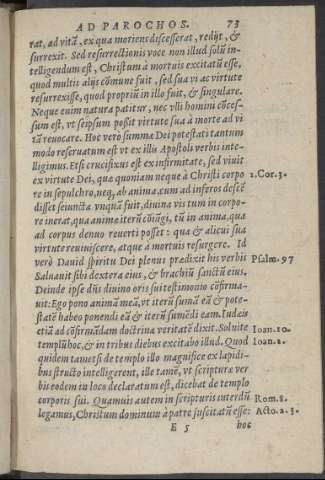 AD PAROCHOS. 73
rat, ad vitã, ex qua moriens discesserat, redijt, &
surrexit. Sed resurrectionis voce non illud solũ in-
telligendum est, Christum à mortuis excitatũ esse,
quod multis alijs cõmune fuit, sed sua vi ac virtute
resurrexisse, quod propriũ in illo fuit, & singulare.
Neque enim natura patitur, nec vlli homini cõces-
sum est, vt seipsum possit virtute sua à morte ad vi
tã reuocare. Hoc verò summæ Dei potestati tantum
modo reseruatum est vt ex illis Apostoli verbis inte-
ligimus. Etsi crucifixus est ex infirmitate, sed viuit
ex virtute Dei, quæ quoniam neque à Christi corpo 1. Cor. 3.
re in sepulchro, neq; ab anima, cum ad inferos descẽ
disset seiuncta vnquã fuit, diuina vis tum in corpo-
re inerat, qua animæ iterũ cõiũgi, tũ in anima, qua
ad corpus denuo reuerti posset: qua & alicui sua
virtute reuiuiscere, atque à mortuis resurgere. Id
verò Dauid spiritu Dei plenus predixit his verbis Psalm. 97
Saluauit sibi dextera eius, & brachiũ sanctũ eius.
Deinde ipse dñs diuino oris sui testimonio cõfirma-
uit: Ego pono animã meã, vt iterũ sumã eã & pote-
statẽ habeo ponendi eã & iterũ sumẽdi eam. Iudæis
etiã ad cõfirmãdam doctrinæ veritatẽ dixit. Soluite Ioan. 10.
templũ hoc, & in tribus diebus excitabo illud. Quod Ioan. 2.
quidem tametsi de templo illo magnifice ex lapidi-
bus structo intelligerent, ille tamẽ, vt scripturæ ver
bis eodem in loco declaratum est, dicebat de templo
corporis sui. Quamuis autem in scripturis interdũ Rom. 8.
legamus, Christum dominum à patre suscitatũ esse: Acto. 2. 3.
E 5 hoc